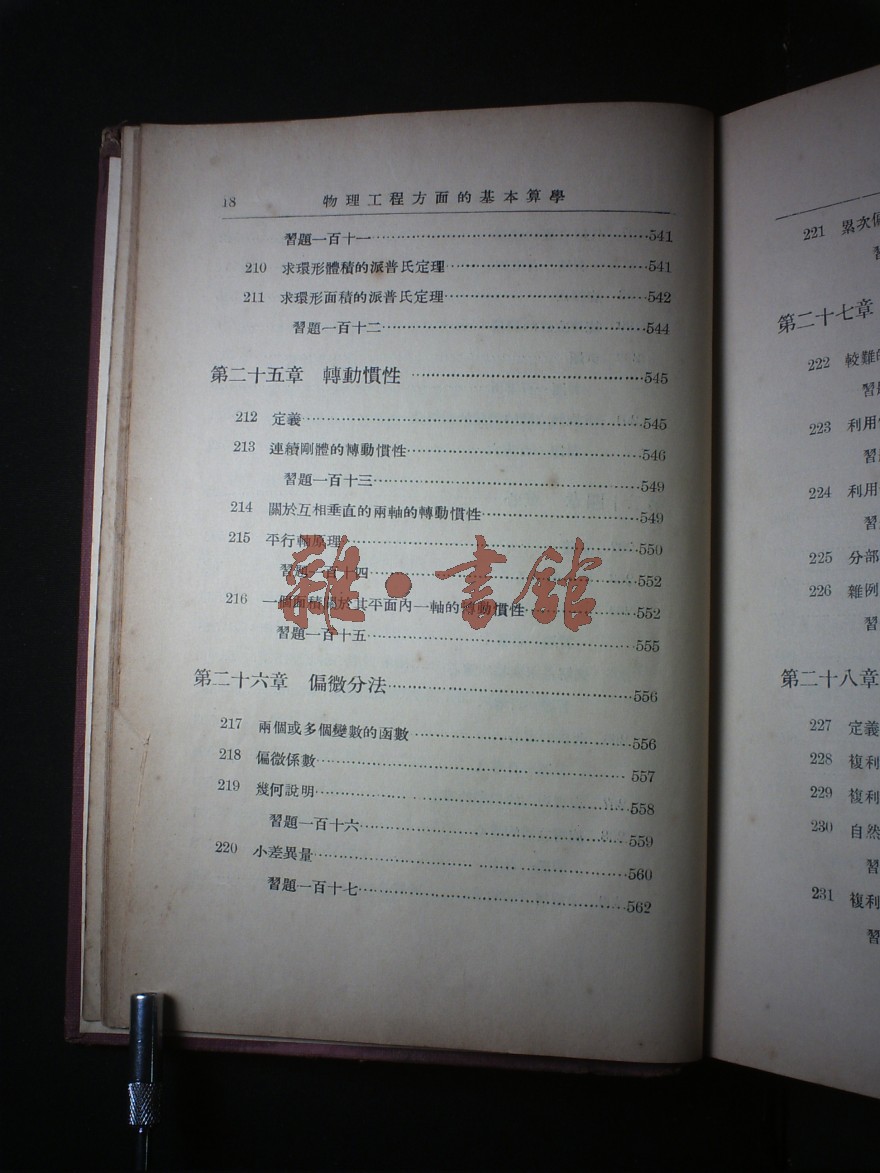 18 物理工程方面的基本算學
習題一百十一 541
210 求環形體積的派普氏定理 541
211 求環形面積的派普氏定理 542
習題一百十二 544
第二十五章 轉動慣性 545
212 定義 545
213 連續剛體的轉動慣性 546
習題一百十三 549
214 關於互相垂直的兩軸的轉動慣性 549
215 平行軸原理 550
習題一百十四 552
216 一個面積關於其平面內一軸的轉動慣性 552
習題一百十五 555
第二十六章 偏微分法 556
217 兩個或多個變數的函數 556
218 偏微係數 557
219 幾何說明 558
習題一百十六 559
220 小差異量 560
習題一百十七 562
雜·書館
221 累次偏
習
第二十七章
222 較難的
習題
223 利用
習題
224 利用
習
225 分部
226 雜例
習
第二十八章
227 定義
228 複利
229 複利
230 自然
習
231 複利
習